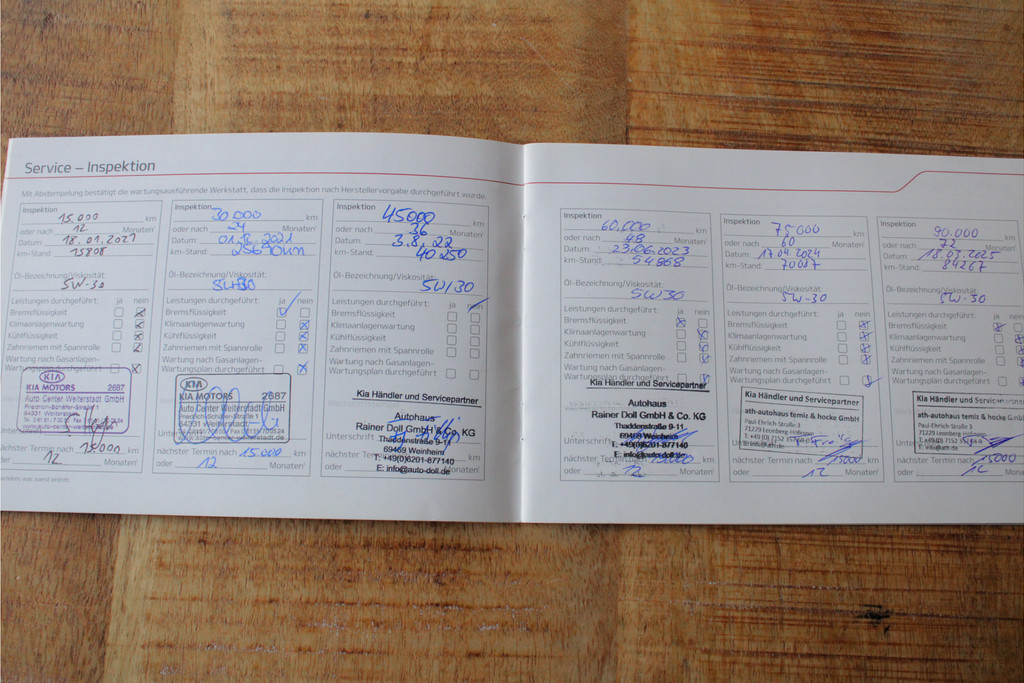 Service – Inspektion
Mit Abstempelung bestätigt die wartungsausführende Werkstatt, dass die Inspektion nach Herstellervorgabe durchgeführt wurde.
Inspektion
15.000 km
oder nach 12 Monaten¹
Datum: 18.01.2021
km-Stand: 15808
Öl-Bezeichnung/Viskosität:
5W-30
Leistungen durchgeführt: ja nein
Bremsflüssigkeit
Klimaanlagenwartung
Kühlflüssigkeit
Zahnriemen mit Spannrolle
Wartung nach Gasanlagen-
Wartungsplan durchgeführt
KIA
KIA MOTORS 2687
Auto Center Weiterstadt GmbH
64331 Weiterstadt
15.000 km
12 Monaten¹
Inspektion
30.000 km
oder nach 24 Monaten¹
Datum:
km-Stand:
Öl-Bezeichnung/Viskosität:
Leistungen durchgeführt: ja nein
Bremsflüssigkeit
Klimaanlagenwartung
Kühlflüssigkeit
Zahnriemen mit Spannrolle
Wartung nach Gasanlagen-
Wartungsplan durchgeführt
KIA
KIA MOTORS 2687
Auto Center Weiterstadt GmbH
64331 Weiterstadt
nächster Termin nach 15.000 km
oder 12 Monaten¹
Inspektion
45000 km
oder nach 36 Monaten¹
Datum: 3.8.22
km-Stand: 40 250
Öl-Bezeichnung/Viskosität:
5W30
Leistungen durchgeführt: ja nein
Bremsflüssigkeit
Klimaanlagenwartung
Kühlflüssigkeit
Zahnriemen mit Spannrolle
Wartung nach Gasanlagen-
Wartungsplan durchgeführt
Kia Händler und Servicepartner
Autohaus
Rainer Doll GmbH & Co. KG
Thaddenstraße 9-11
69469 Weinheim
T: +49(0)6201-877140
E: info@auto-doll.de
Unterschrift
nächster Termin
oder Monaten¹
Inspektion
60.000 km
oder nach 48 Monaten¹
Datum: 23.06.2023
km-Stand: 54868
Öl-Bezeichnung/Viskosität:
5W30
Leistungen durchgeführt: ja nein
Bremsflüssigkeit
Klimaanlagenwartung
Kühlflüssigkeit
Zahnriemen mit Spannrolle
Wartung nach Gasanlagen-
Wartungsplan durchgeführt
Kia Händler und Servicepartner
Autohaus
Rainer Doll GmbH & Co. KG
Thaddenstraße 9-11
69469 Weinheim
T: +49(0)6201-877140
E: info@auto-doll.de
Unterschrift
nächster Termin km
oder 12 Monaten¹
Inspektion
75000 km
oder nach 60 Monaten¹
Datum: 17.04.2024
km-Stand:
Öl-Bezeichnung/Viskosität:
5W-30
Leistungen durchgeführt: ja nein
Bremsflüssigkeit
Klimaanlagenwartung
Kühlflüssigkeit
Zahnriemen mit Spannrolle
Wartung nach Gasanlagen-
Wartungsplan durchgeführt
Kia Händler und Servicepartner
ath-autohaus temiz & hocke GmbH
Paul Ehrlich Straße 3
71229 Leonberg-Höfingen
nächster Termin nach 15000 km
oder 12 Monaten¹
Inspektion
90.000 km
oder nach 72 Monaten¹
Datum: 18.03.2025
km-Stand: 84267
Öl-Bezeichnung/Viskosität:
5W-30
Leistungen durchgeführt: ja
Bremsflüssigkeit
Klimaanlagenwartung
Kühlflüssigkeit
Zahnriemen mit Spannrolle
Wartung nach Gasanlagen-
Wartungsplan durchgeführt
Kia Händler und Servicepartner
ath-autohaus temiz & hocke GmbH
Paul Ehrlich Straße 3
71229 Leonberg-Höfingen
nächster Termin nach 15000 km
oder 12 Monaten¹